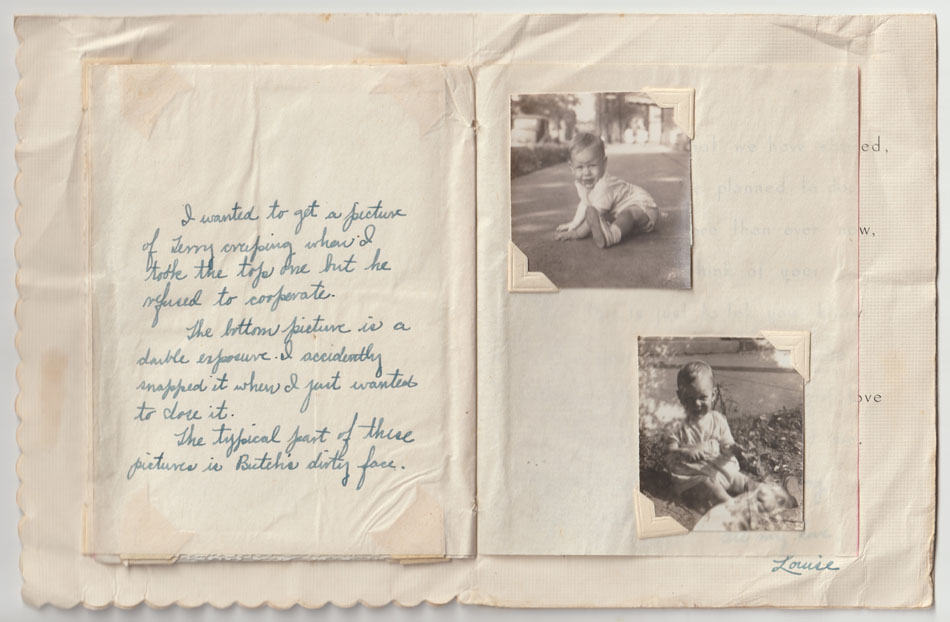 I wanted to get a picture
of Terry creeping when I
took the top one but he
refused to cooperate.
The bottom picture is a
double exposure. I accidently
snapped it when I just wanted
to close it.
The typical part of these
pictures is Butch's dirty face.
we now ed,
planned to
than ever w,
of your
is just
ove
Louise